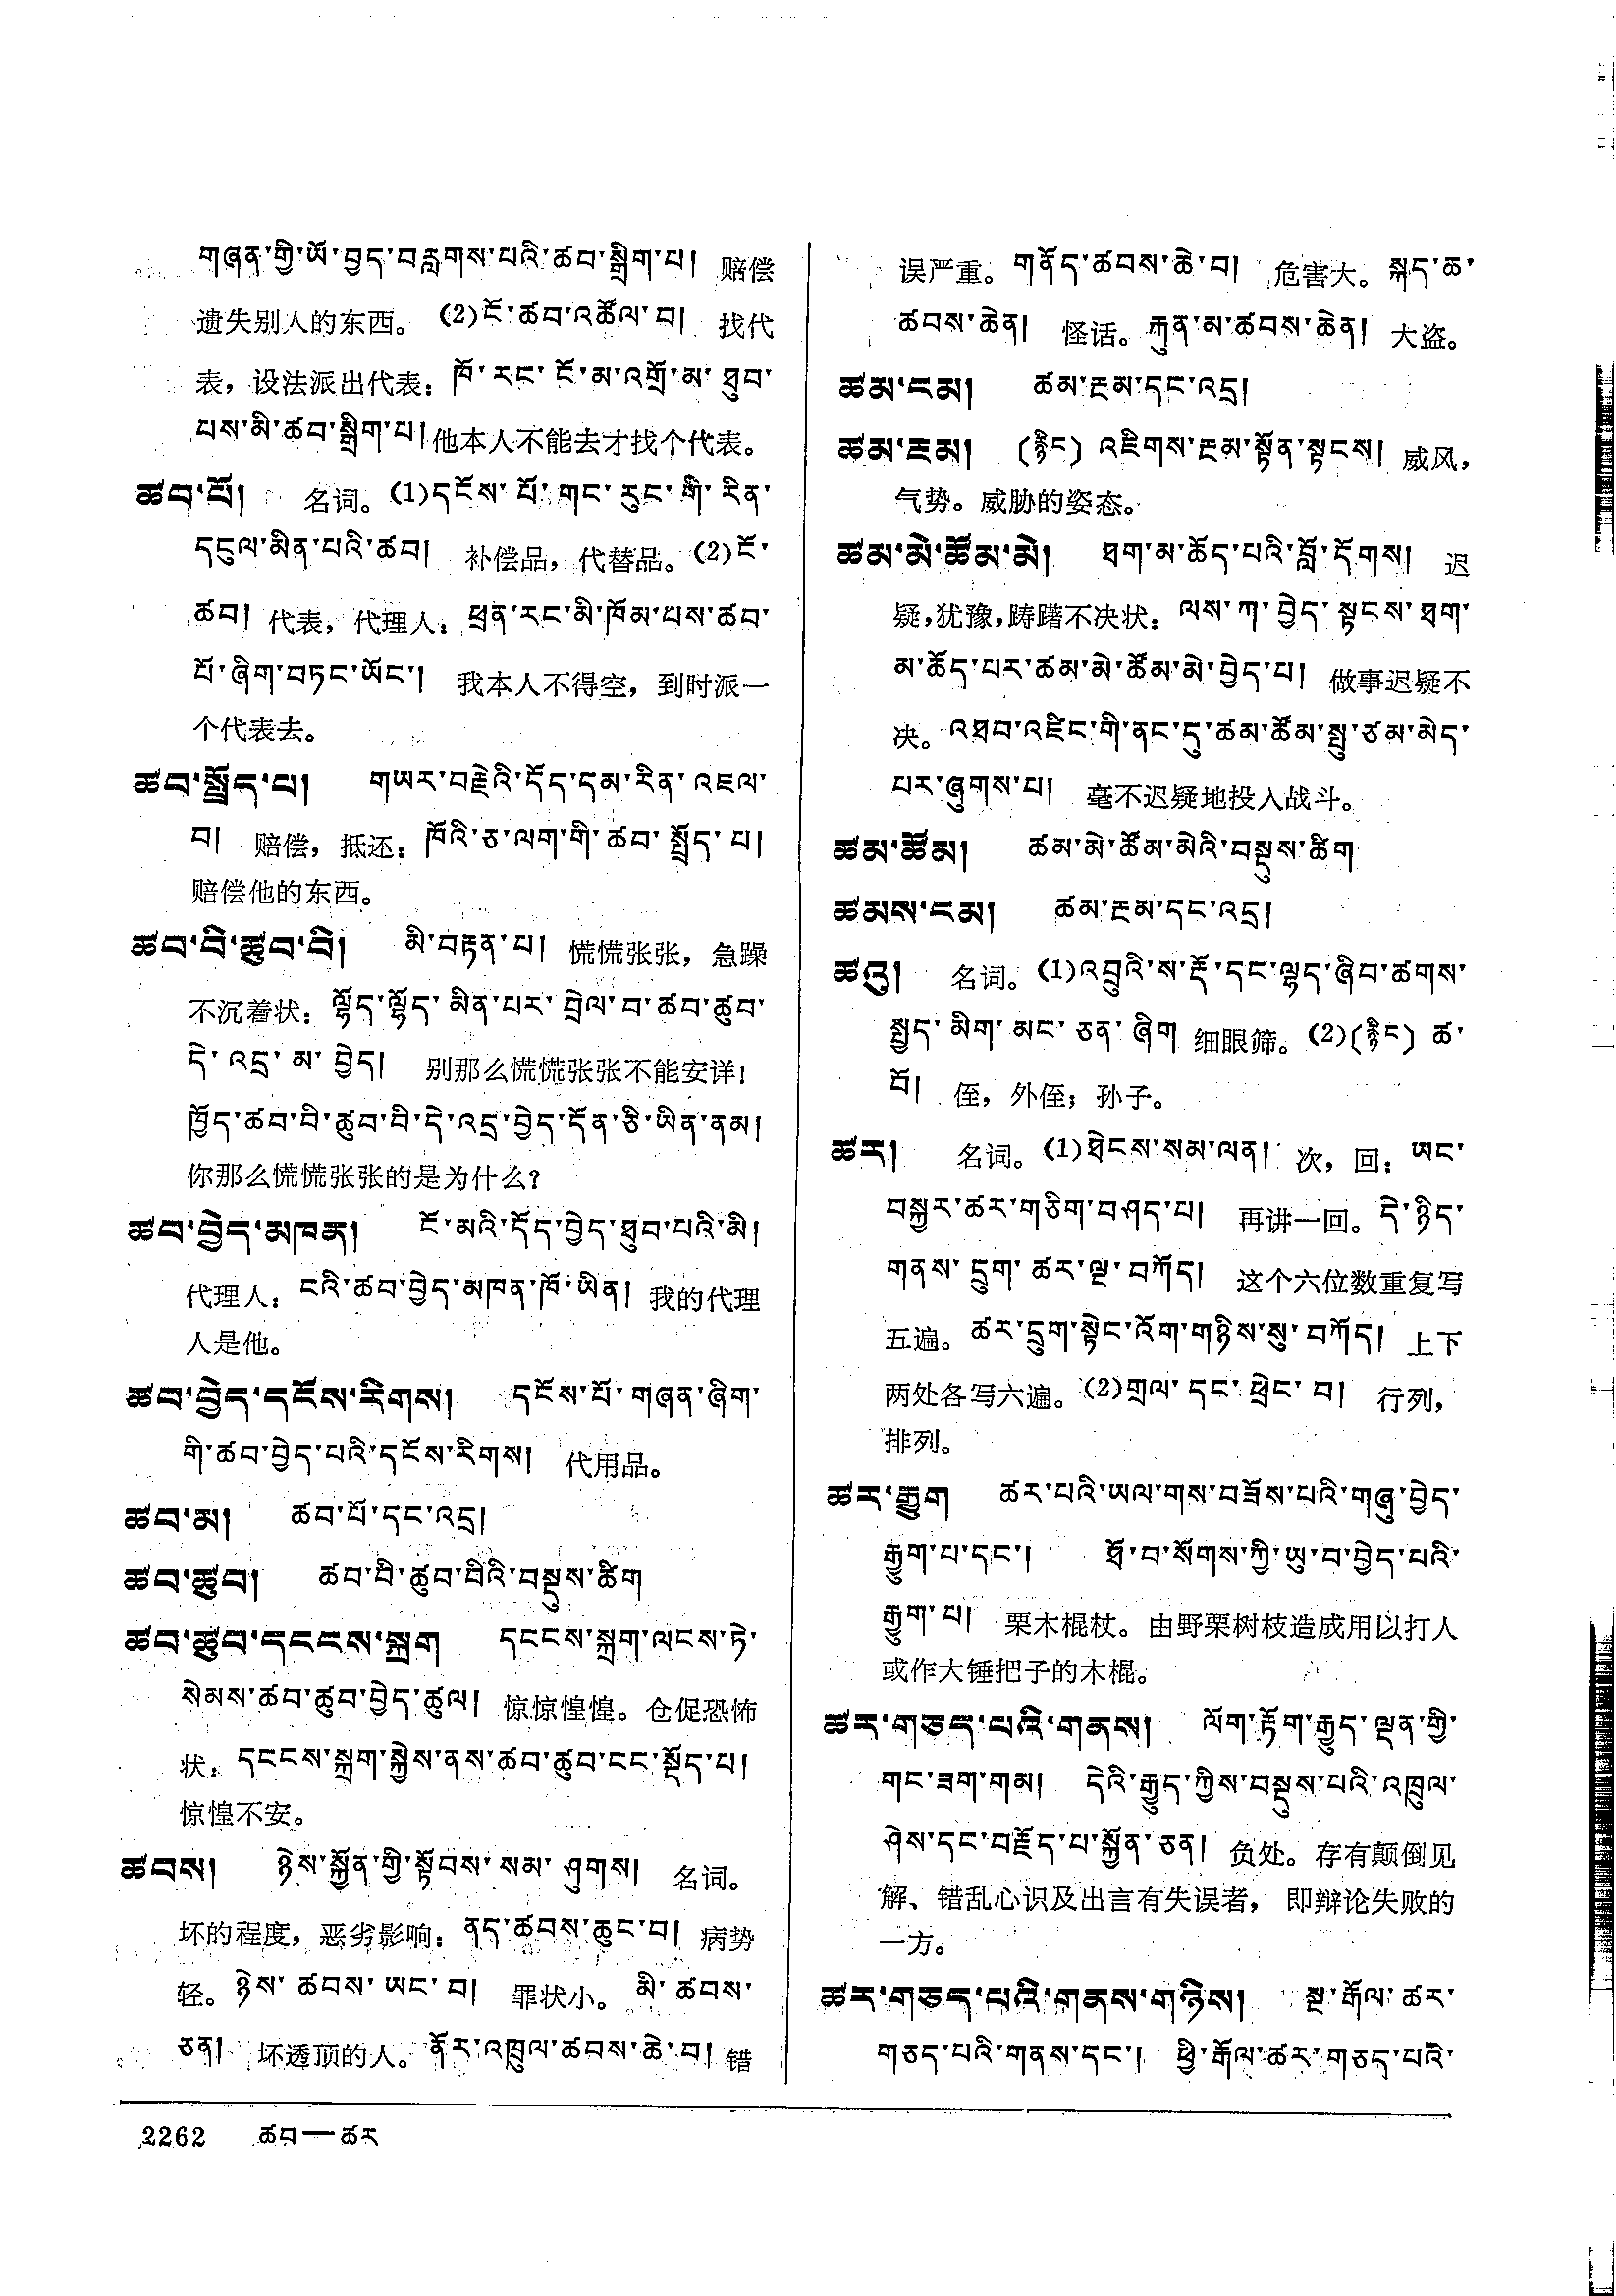 གཞན་གྱི་ཡོ་བྱད་བརླགས་པའི་ཚབ་སྒྲིག་པ། 赔偿
遗失别人的东西。 (2)ངོ་ཚབ་འཚོལ་བ། 找代
表，设法派出代表：ཁོ་རང་ངོ་མ་འགྲོ་མ་ཐུབ་
པས་མི་ཚབ་སྒྲིག་པ།他本人不能去才找个代表。
ཚབ་པོ། 名词。(1)དངོས་པོ་གང་རུང་གི་རིན་
དངུལ་མིན་པའི་ཚབ། 补偿品，代替品。(2)ངོ་
ཚབ། 代表，代理人：ཕྲན་རང་མི་ཁོམ་པས་ཚབ་
པོ་ཞིག་བཏང་ཡོང་། 我本人不得空，到时派一
个代表去。
ཚབ་སྤྲོད་པ། གཡར་བརྗེའི་དོད་དམ་རིན་འཇལ་
བ། 赔偿，抵还：ཁོའི་ཅ་ལག་གི་ཚབ་སྤྲོད་པ།
赔偿他的东西。
ཚབ་བེ་ཚུབ་བེ། མི་བརྟན་པ། 慌慌张张，急躁
不沉着状：ལྷོད་ལྷོད་མིན་པར་བྲེལ་བ་ཚབ་ཚུབ་
དེ་འདྲ་མ་བྱེད། 别那么慌慌张张不能安详！
ཁྱོད་ཚབ་བེ་ཚུབ་བེ་དེ་འདྲ་བྱེད་དོན་ཅི་ཡིན་ནམ།
你那么慌慌张张的是为什么？
ཚབ་བྱེད་མཁན། ངོ་མའི་དོད་བྱེད་ཐུབ་པའི་མི།
代理人：ངའི་ཚབ་བྱེད་མཁན་ཁོ་ཡིན། 我的代理
人是他。
ཚབ་བྱེད་དངོས་རིགས། དངོས་པོ་གཞན་ཞིག་
གི་ཚབ་བྱེད་པའི་དངོས་རིགས། 代用品。
ཚབ་མ། ཚབ་པོ་དང་འདྲ།
ཚབ་ཚུབ། ཚབ་བེ་ཚུབ་བེའི་བསྡུས་ཚིག
ཚབ་ཚུབ་དངངས་སྐྲག དངངས་སྐྲག་ལངས་ཏེ་
སེམས་ཚབ་ཚུབ་བྱེད་ཚུལ། 惊惊惶惶。仓促恐怖
状：དངངས་སྐྲག་སྐྱེས་ནས་ཚབ་ཚུབ་ངང་སྡོད་པ།
惊惶不安。
ཚབས། ཉེས་སྐྱོན་གྱི་སྟོབས་སམ་ཤུགས། 名词。
坏的程度，恶劣影响：ནད་ཚབས་ཆུང་བ། 病势
轻。ཉེས་ཚབས་ཡང་བ། 罪状小。མི་ཚབས་
ཅན། 坏透顶的人。ནོར་འཁྲུལ་ཚབས་ཆེ་བ། 错
误严重。གནོད་ཚབས་ཆེ་བ། 危害大。སྐད་ཆ་
ཚབས་ཆེན། 怪话。རྐུན་མ་ཚབས་ཆེན། 大盗。
ཚམ་ངམ། ཚམ་རྔམ་དང་འདྲ།
ཚམ་རྔམ། (རྙིང) འཇིགས་རྔམ་སྟོན་སྟངས། 威风，
气势。威胁的姿态。
ཚམ་མེ་ཚོམ་མེ། ཐག་མ་ཆོད་པའི་བློ་དོགས། 迟
疑，犹豫，踌躇不决状：ལས་ཀ་བྱེད་སྟངས་ཐག་
མ་ཆོད་པར་ཚམ་མེ་ཚོམ་མེ་བྱེད་པ། 做事迟疑不
决。འཐབ་འཛིང་གི་ནང་དུ་ཚམ་ཚོམ་སྤུ་ཙམ་མེད་
པར་ཞུགས་པ། 毫不迟疑地投入战斗。
ཚམ་ཚོམ། ཚམ་མེ་ཚོམ་མེའི་བསྡུས་ཚིག
ཚམས་ངམ། ཚམ་རྔམ་དང་འདྲ།
ཚའུ། 名词。(1)འབྲུའི་ས་རྡོ་དང་ལྷད་ཞིབ་ཚགས་
སྤྱད་མིག་མང་ཅན་ཞིག 细眼筛。(2)(རྙིང) ཚ་
བོ། 侄，外侄；孙子。
ཚར། 名词。(1)ཐེངས་སམ་ལན། 次，回：ཡང་
བསྐྱར་ཚར་གཅིག་བཤད་པ། 再讲一回。དེ་ཉིད་
གནས་དྲུག་ཚར་ལྔ་བཀོད། 这个六位数重复写
五遍。ཚར་དྲུག་སྟེང་འོག་གཉིས་སུ་བཀོད། 上下
两处各写六遍。(2)གྲལ་དང་ཕྲེང་བ། 行列，
排列。
ཚར་རྒྱུག ཚར་པའི་ཡལ་གས་བཟོས་པའི་གཞུ་བྱེད་
རྒྱུག་པ་དང་། ཐོ་བ་སོགས་ཀྱི་ཡུ་བ་བྱེད་པའི་
རྒྱུག་པ། 栗木棍杖。由野栗树枝造成用以打人
或作大锤把子的木棍。
ཚར་གཅད་པའི་གནས། ལོག་རྟོག་རྒྱུད་ལྡན་གྱི་
གང་ཟག་གམ། དེའི་རྒྱུད་ཀྱིས་བསྡུས་པའི་འཁྲུལ་
ཤེས་དང་བརྗོད་པ་སྐྱོན་ཅན། 负处。存有颠倒见
解、错乱心识及出言有失误者，即辩论失败的
一方。
ཚར་གཅད་པའི་གནས་གཉིས། སྔ་རྒོལ་ཚར་
གཅད་པའི་གནས་དང་། ཕྱི་རྒོལ་ཚར་གཅད་པའི་
2262 ཚབ—ཚར